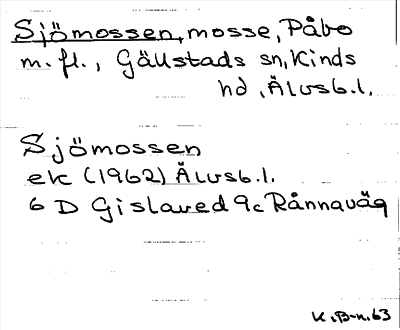 Sjömossen, mosse, Påbo
m.fl., Gällstads sn, Kinds
hd, Älvsb.l.
Sjömossen
ek (1962) Älvsb.l.
6 D Gislaved 9c Rånnaväg
K.B-n.63